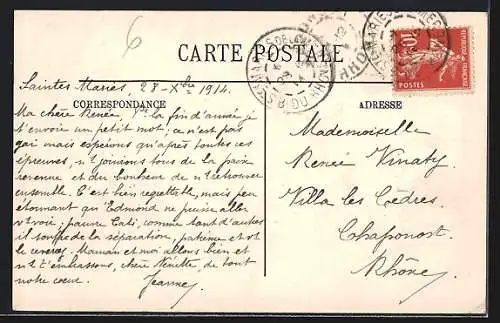 6
CARTE POSTALE
Saintes Maries, 28 - Xbre 1914.
CORRESPONDANCE
ADRESSE
Ma chère Renée, la fin d'année je
t'envoie un petit mot; ce n'est pas
gai mais espérons qu'après toutes ces
épreuves, ns jouirons tous de la paix
revenue et du bonheur de ns retrouver
ensemble. C'est bien regrettable, mais peu
étonnant qu'Edmond ne puisse aller
vs voir; pauvre Cati, comme tant d'autres
il souffre de la séparation, patience et
Maman et moi allons bien et
ns t'embrassons, chère Nénette, de tout
notre coeur. Jeanne
Mademoiselle
Renée Vinaty
Villa les Cèdres
Collaponost
Rhône
REPUBLIQUE FRANÇAISE
10